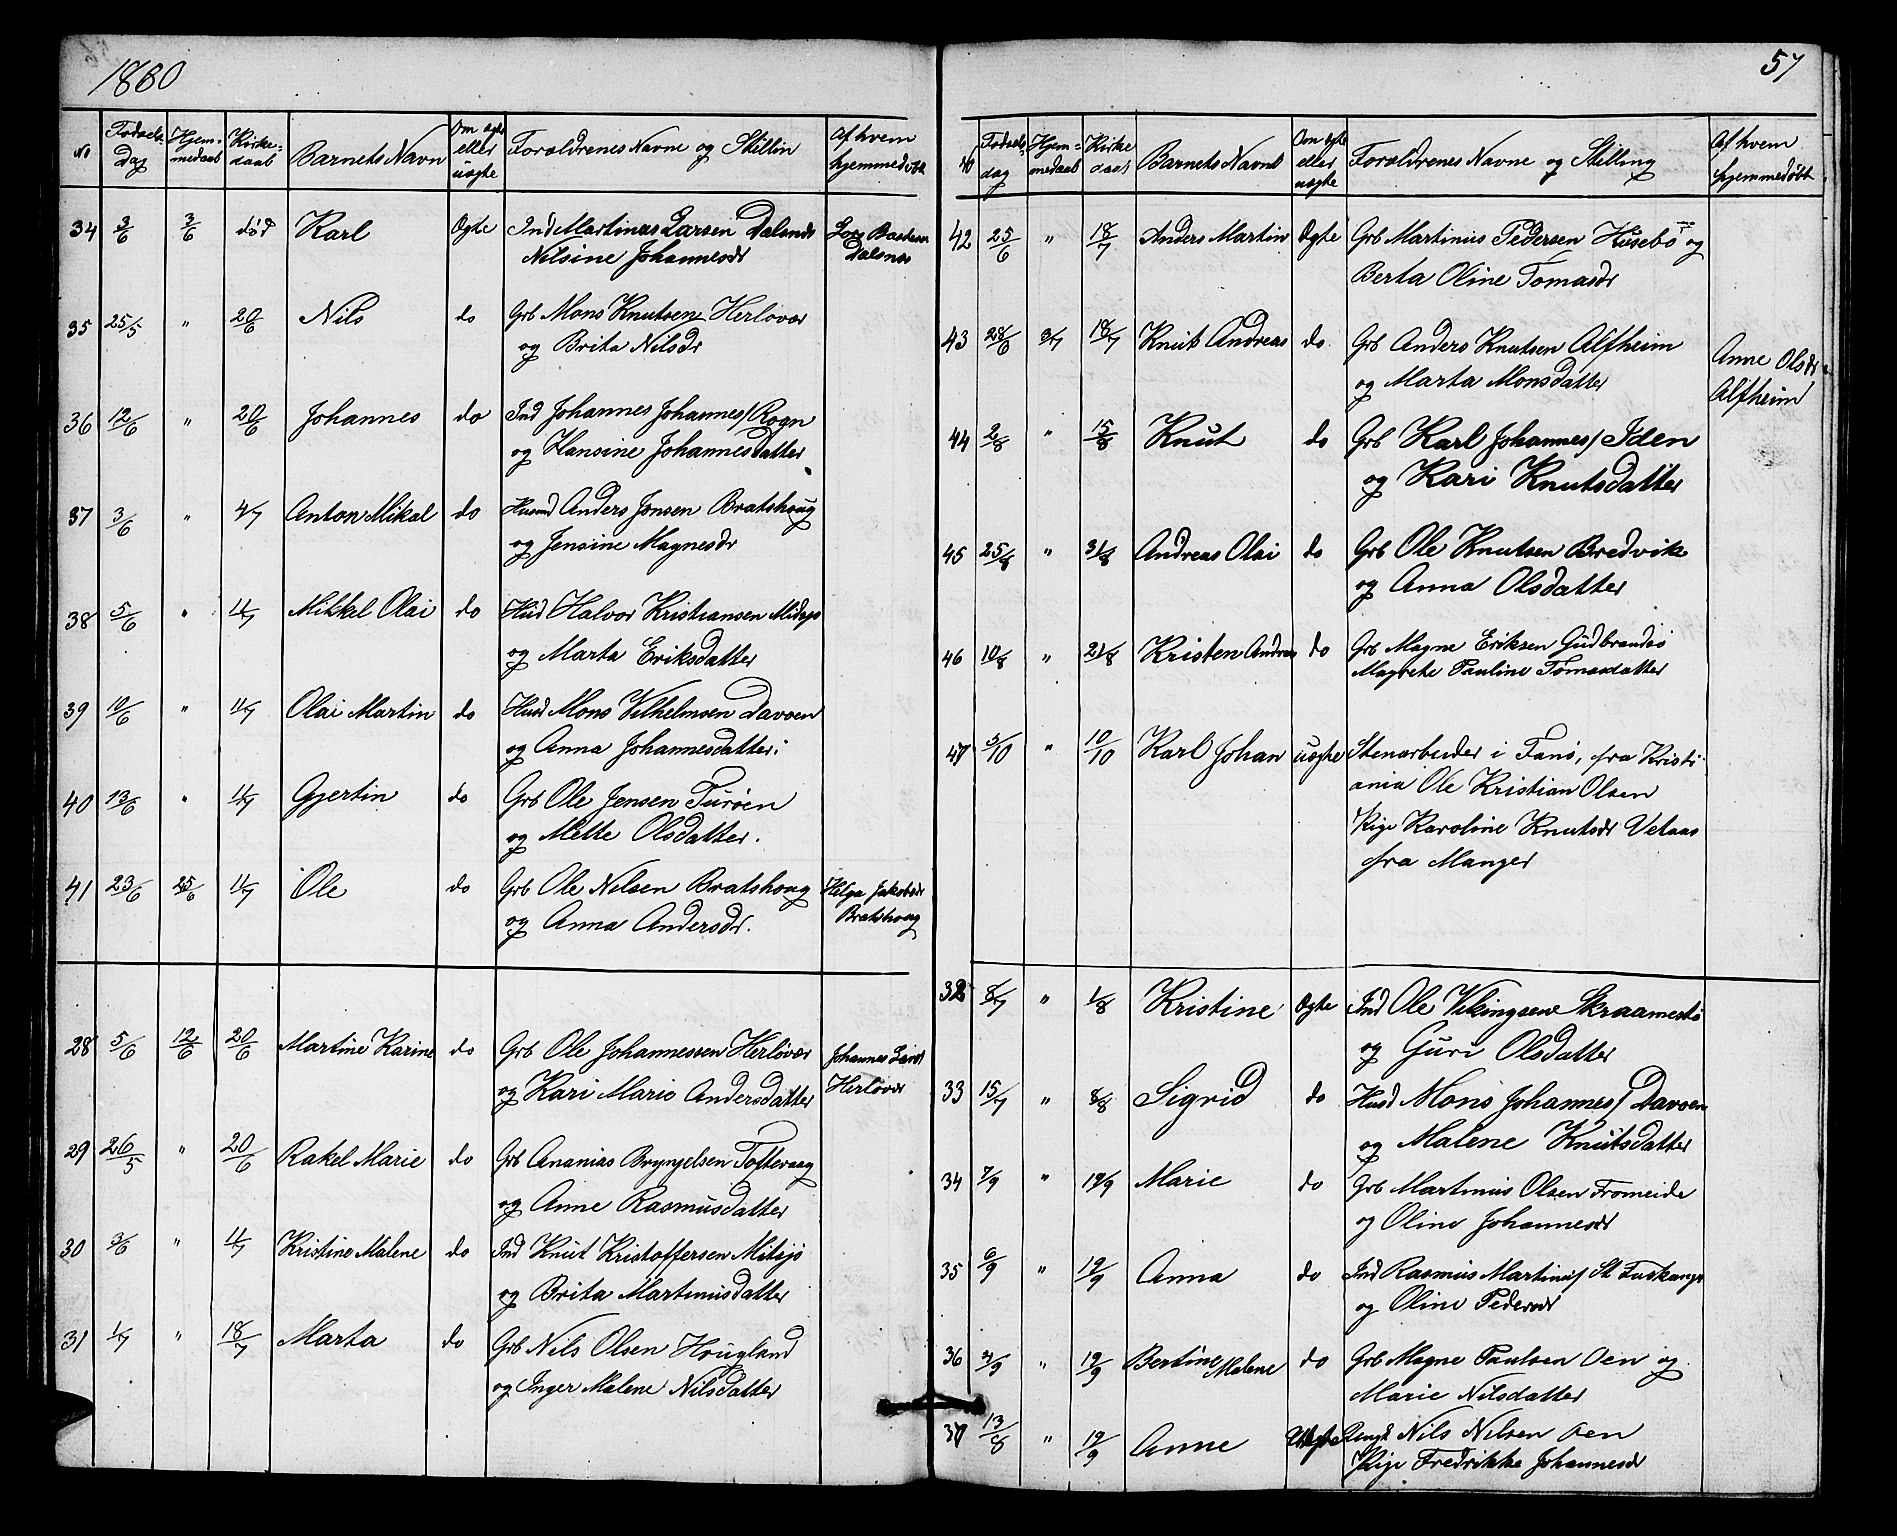 1880
No Fødsels Dag Hjem= medaab Kirke= daab Barnets Navn Om ægte eller uægte Forældrenes Navne og Stillin Af hvem hjemmedøbt
34 3/6 3/6 død Karl Ægte Ind Martinus Larsen Dalsnæs
Nilsine Johannesdr Dalsnæs
35 25/5 " 20/6 Nils do Grb Mons Knutsen Herløvær
og Brita Nilsdr
36 12/6 " 20/6 Johannes do Ind Johannes Johannes/ Rogn
og Hansine Johannesdatter
37 3/6 " 4/7 Anton Mikal do Husmd Anders Jonsen Bratshoug
og Jensine Magnesdr
38 5/6 " 11/7 Mikkel Olai do Husd Halvor Kristiansen
og Marta Eriksdatter
39 10/6 " 11/7 Olai Martin do Husd Mons Vilhelmsen Davøen
og Anna Johannesdatter
40 13/6 " 11/7 Gjertin do Grb Ole Jensen Turøen
og Mette Olsdatter.
41 23/6 25/6 11/7 Ole do Grb Ole Nilsen Bratshoug Helga Jakobsdr
og Anna Andersdr. Bratshoug
28 5/6 12/6 20/6 Martine Karine do Grb Ole Johannessen Herløvær Johannes
og Kari Marie Andersdatter Herløvær
29 26/5 " 20/6 Rakel Marie do Grb Ananias Bryngelsen Toftevaag
og Anne Rasmusdatter
30 3/6 " 11/7 Kristine Malene do Ind Knut Kristoffersen Mitsjø
og Brita Martinusdatter
31 1/7 " 18/7 Marta do Grb Nils Olsen Hougland
og Inger Malene Nilsdatter
57
No Fødsels dag Hjem= medaab Kirke daab Barnets Navn Om ægte eller uægte Forældrenes Navne og Stilling Af hvem hjemmedøbt
42 25/6 " 18/7 Anders Martin Ægte Grb Martinus Pedersen Husebø og
Berta Oline Tomasdr
43 28/6 3/7 18/7 Knut Andreas do Grb Anders Knutsen Alfheim Anne Olsdr
og Marta Monsdatter Alfheim
44 2/8 " 15/8 Knut do Grb Karl Johannes/ Iden
og Kari Knutsdatter
45 25/8 " 31/8 Andreas Olai do Grb Ole Knutsen Bredvik
og Anna Olsdatter
46 10/8 " 21/8 Kristen Andreas do Grb Magne Eriksen Gudbrandsø
Magrete Pauline Tomasdatter
47 5/10 " 10/10 Karl Johan uægte Stenarbeider i Fanø, fra Kristi
ania Ole Kristian Olsen
Pige Karoline Knutsdr Vetaas
fra Manger
32 8/7 " 1/8 Kristine Ægte Ind Ole Vikingsen Skraamestø
og Guri Olsdatter
33 15/7 " 8/8 Sigrid do Husd Mons Johannes/ Davøen
og Malene Knutsdatter
34 7/9 " 19/9 Marie do Grb Martinus Olsen Fromeide
og Oline Johannesdr
35 6/9 " 19/9 Anna do Ind Rasmus Martinus/
og Oline Pedersdr
36 4/9 " 19/9 Bertine Malene do Grb Magne Paulsen Øen og
Marie Nilsdatter
37 13/8 " 19/9 Anne Uægte Ungk Nils Nilsen Øen
Pige Fredrikke Johannesdr